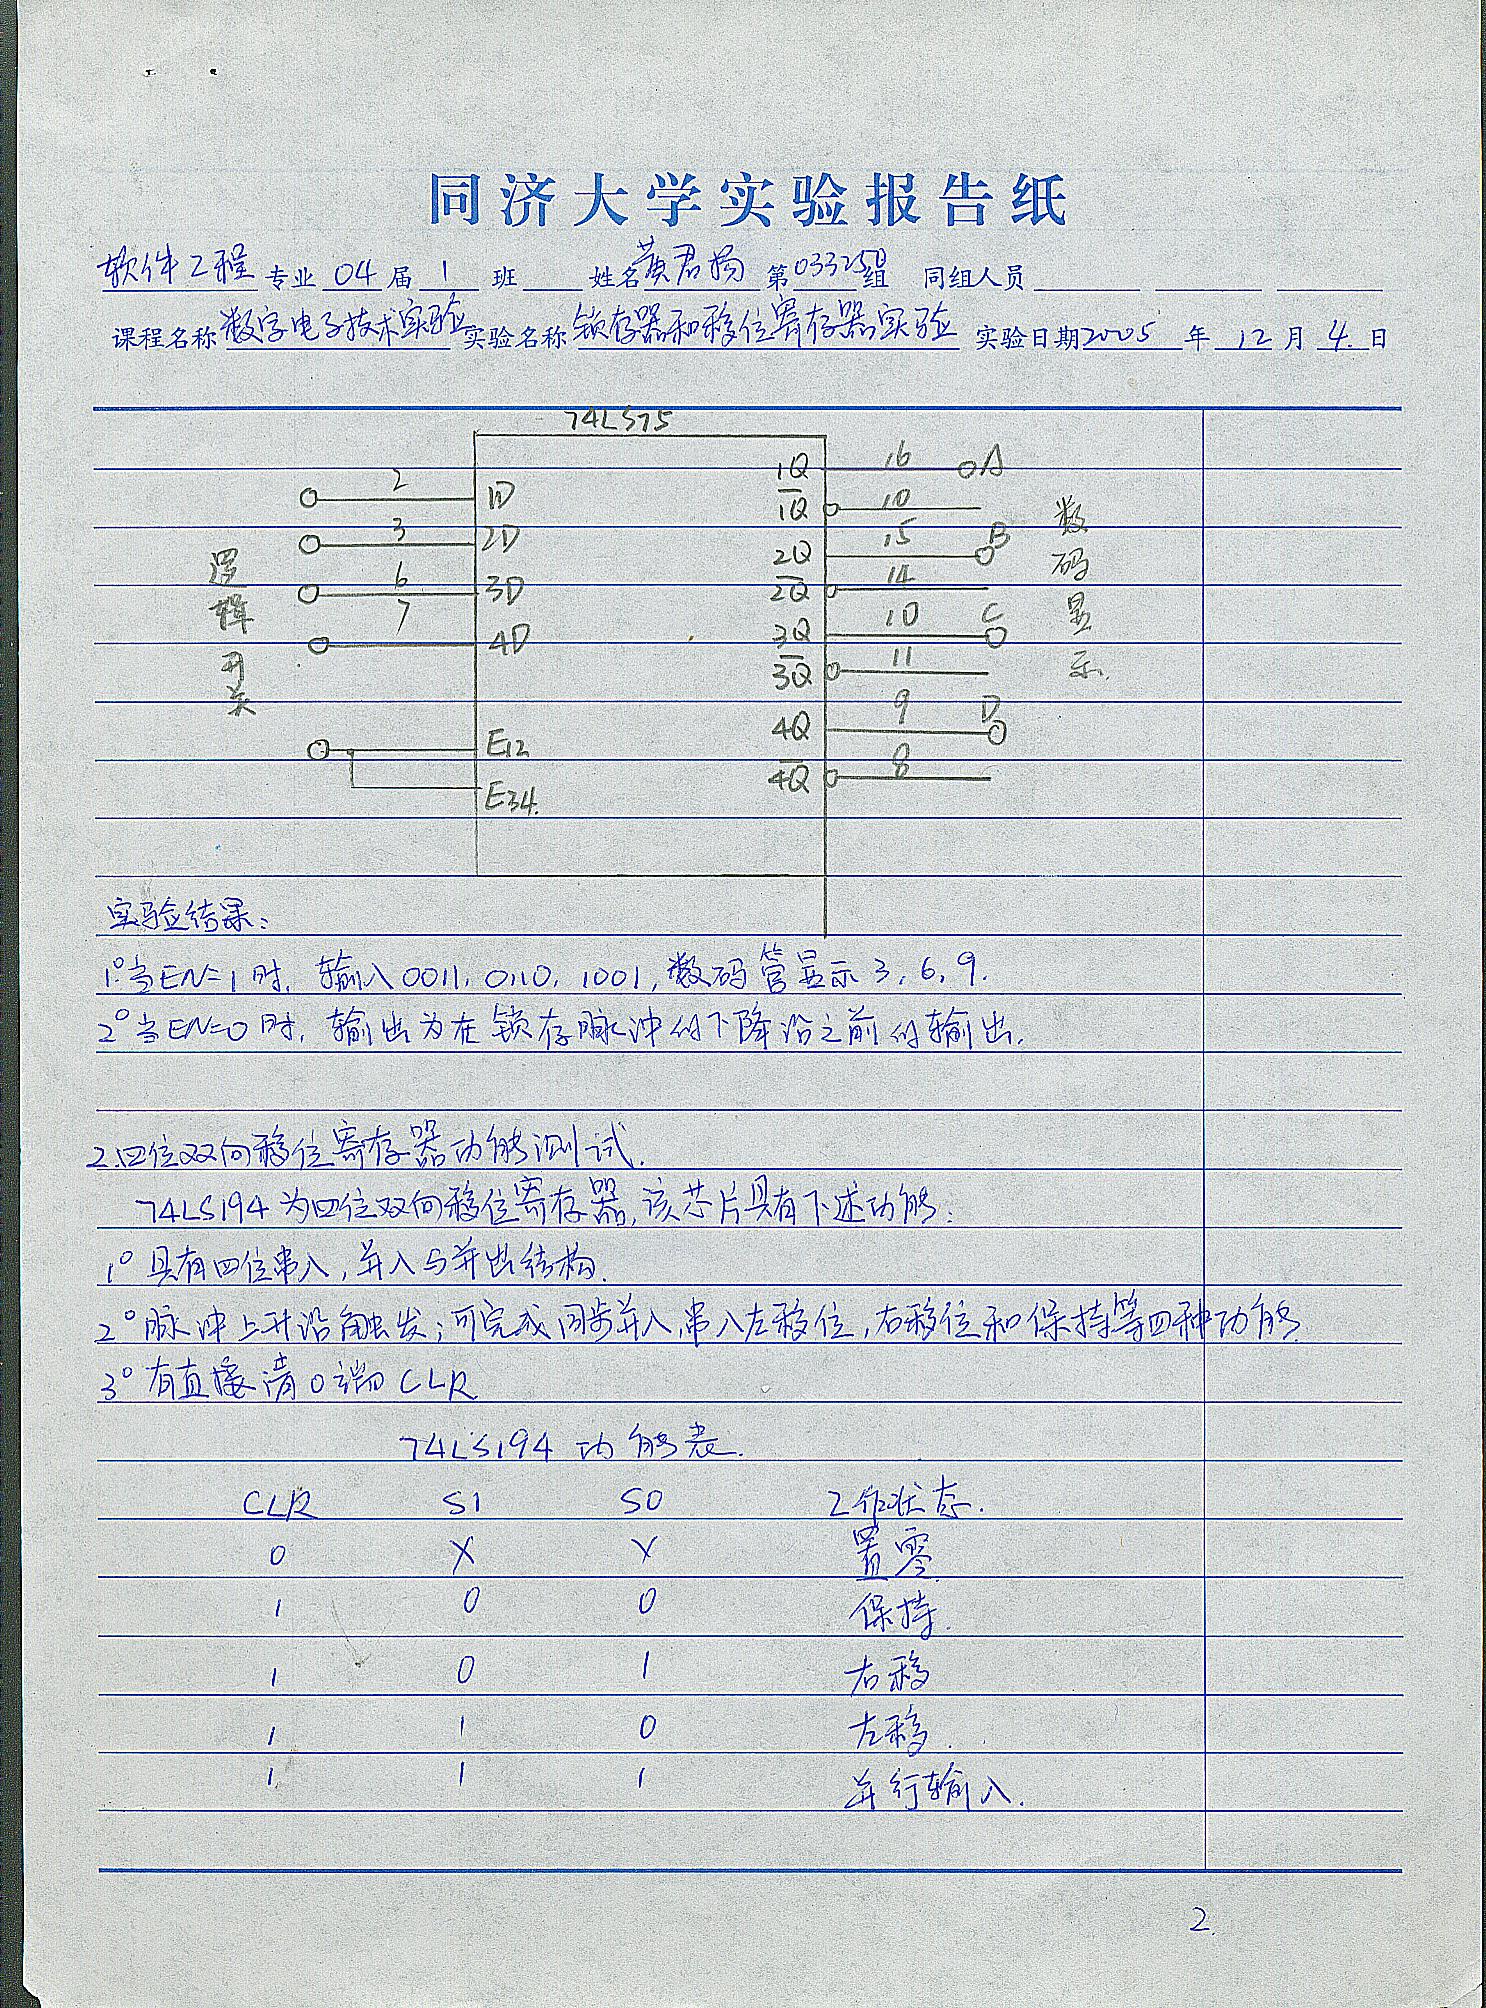 同济大学实验报告纸
软件工程 专业 04 届 1 班 姓名 黄君扬 第 033250 组 同组人员
课程名称 数字电子技术实验 实验名称 锁存器和移位寄存器实验 实验日期 2005 年 12 月 4 日
74LS75
2 1D 1Q 16 A
1Q̅ 10
3 2D 2Q 15 B
6 3D 2Q̅ 14
7 4D 3Q 10 C
3Q̅ 11
4Q 9 D
E12 4Q̅ 8
E34.
逻辑开关
数码显示
实验结果:
1°当EN=1时, 输入0011, 0110, 1001, 数码管显示3, 6, 9.
2°当EN=0时, 输出为在锁存脉冲的下降沿之前的输出.
2.四位双向移位寄存器功能测试.
74LS194为四位双向移位寄存器,该芯片具有下述功能:
1°具有四位串入,并入与并出结构.
2°脉冲上升沿触发;可完成同步并入,串入左移位,右移位和保持等四种功能
3°有直接清0端CLR
74LS194功能表.
CLR S1 S0 工作状态.
0 X X 置零
1 0 0 保持.
1 0 1 右移
1 1 0 左移.
1 1 1 并行输入.
2